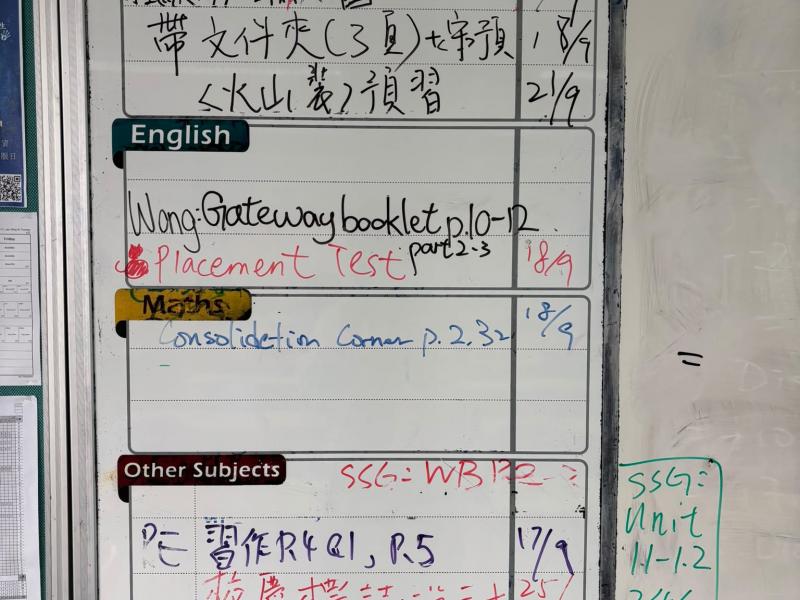 帶文件夾(3頁)+家預 18/9
<火山(裴)>預習 21/9
English
Wong: Gateway booklet p.10-12
part 2-3
Placement Test 18/9
Maths
Consolidation Corner p.2.32 18/9
=
Other Subjects
SSG: WB P.2-3
PE 習作P.4 Q1, P.5 17/9
25/
SSG:
Unit
1.1-1.2